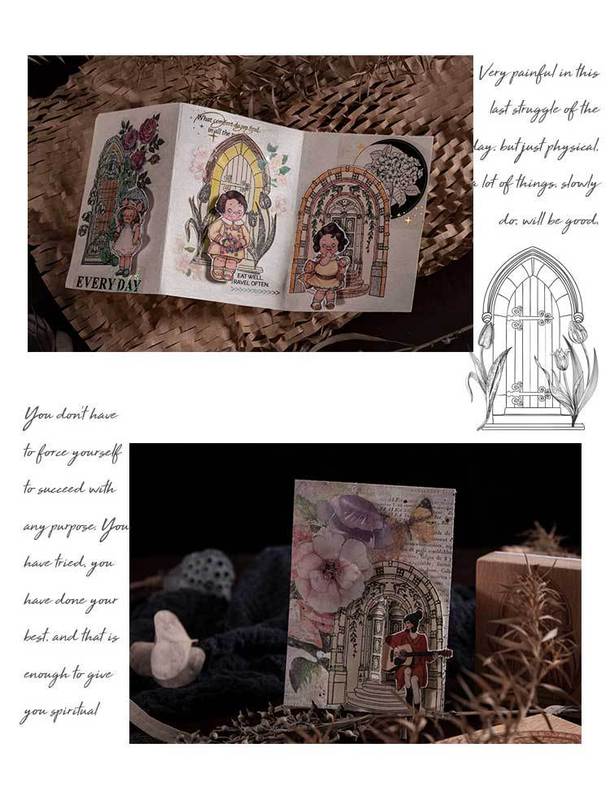 Very painful in this
last struggle of the
day, but just physical,
a lot of things, slowly
do, will be good,
What comfort do you find
in all the
EAT WELL
TRAVEL OFTEN.
EVERY DAY
You don't have
to force yourself
to succeed with
any purpose, You
have tried, you
have done your
best, and that is
enough to give
you spiritual